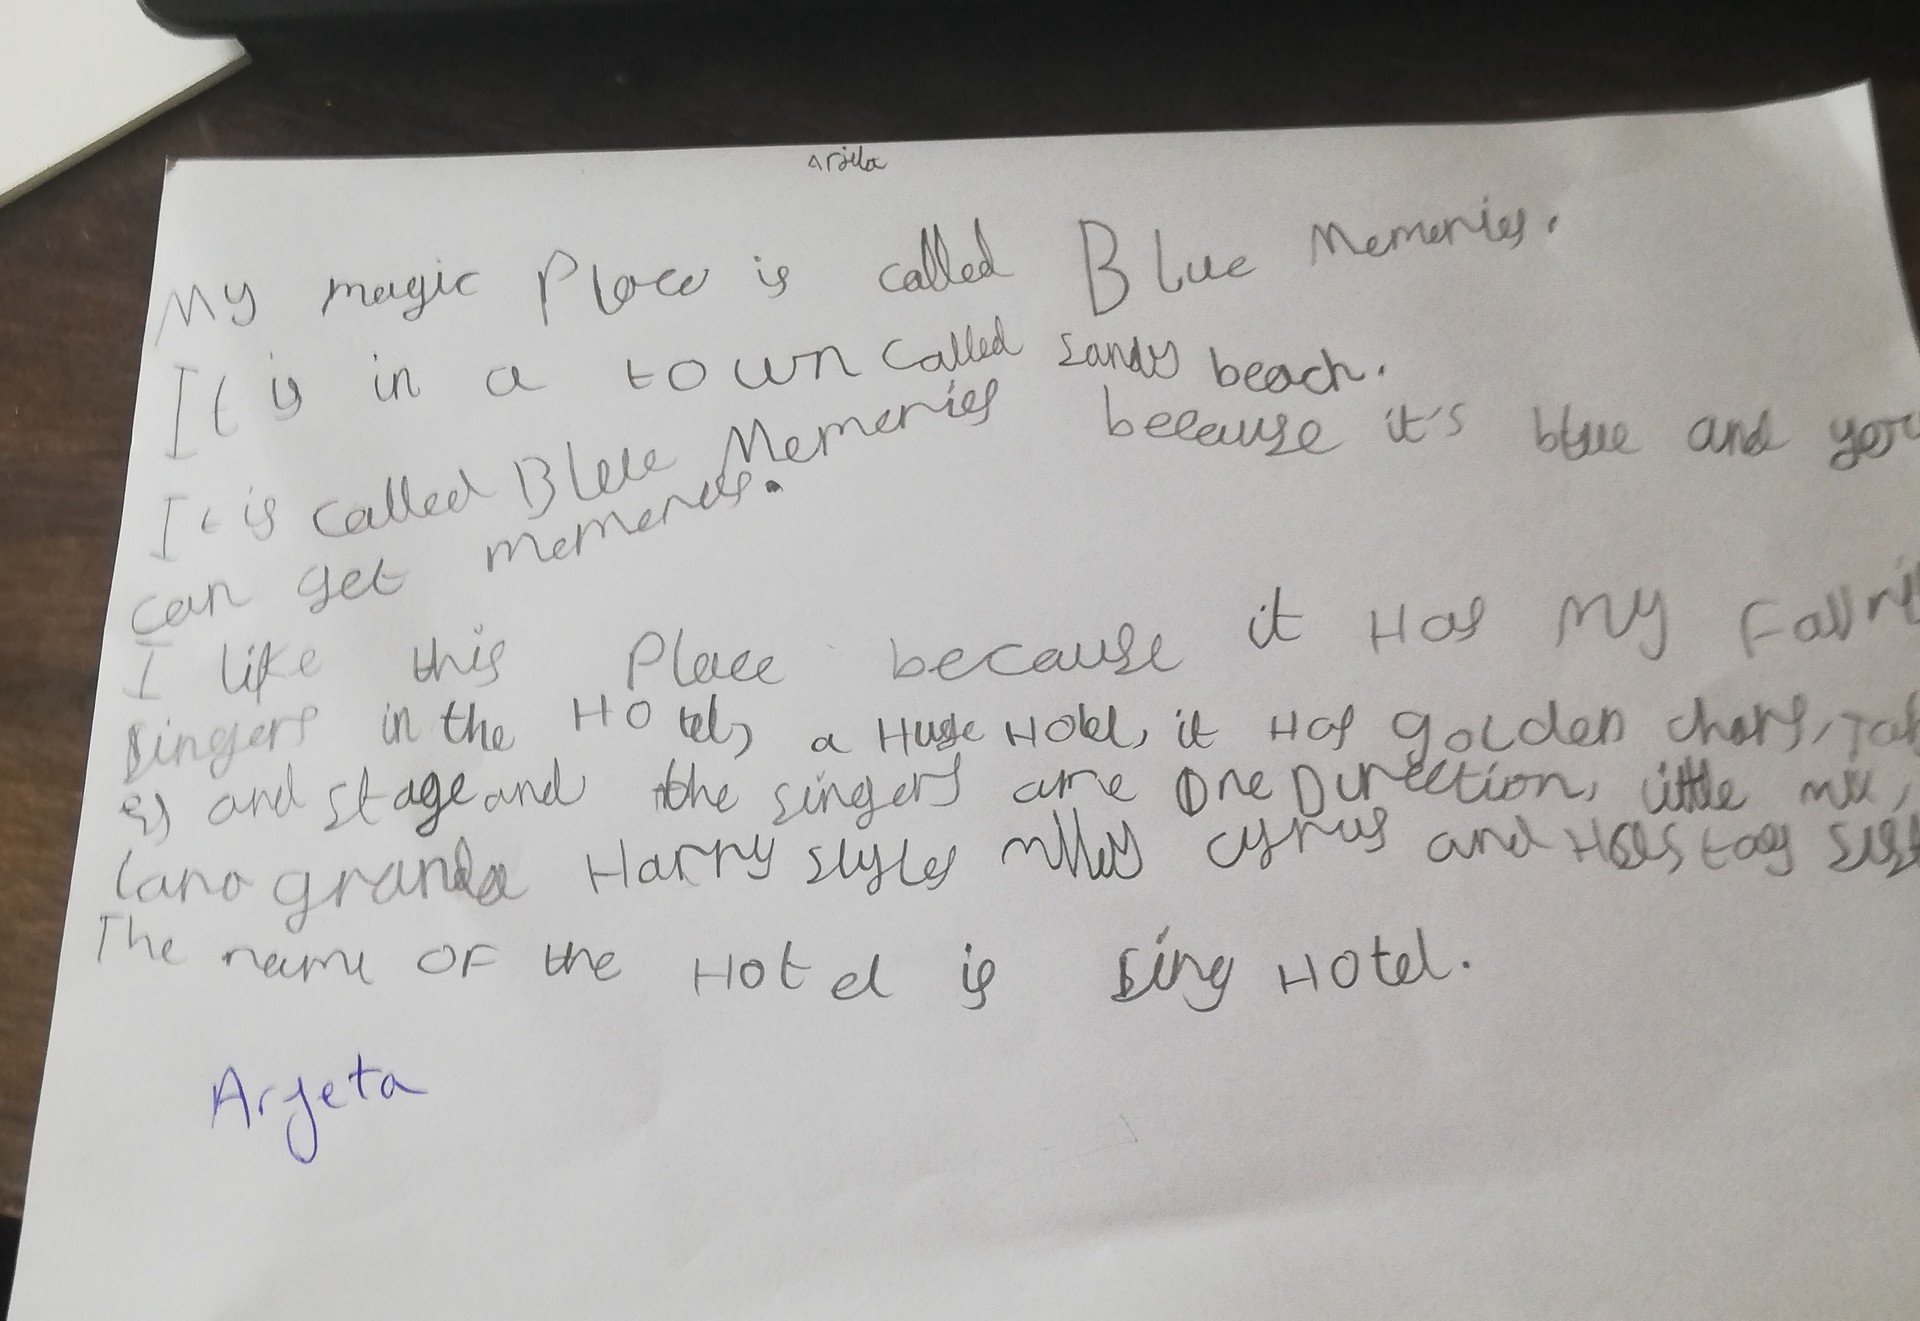 Arjeta
My magic Place is called Blue Memeries.
It is in a town called sandy beach.
It is called Blue Memeries because it's blue and you
can get memeries.
I like this Place because it Has My
singers in the Hotel, a Huge Hotel, it Has golden chars,
es and stage and the singers are One Direction, little mix,
grande Harry styles miley cyrus and
The name OF the Hotel is sing Hotel.
Arjeta